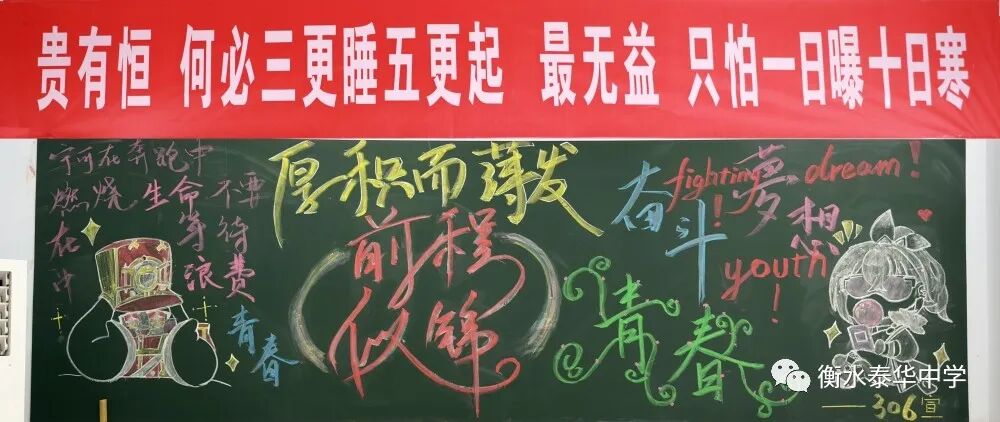 贵有恒 何必三更睡五更起 最无益 只怕一日曝十日寒
宁可在奔跑中
燃烧生命 不要
在等待
中浪费
青春
厚积而薄发
前程
似锦
奋斗!
fighting
夢想
dream!
youth!
青春
衡水泰华中学
——306宣